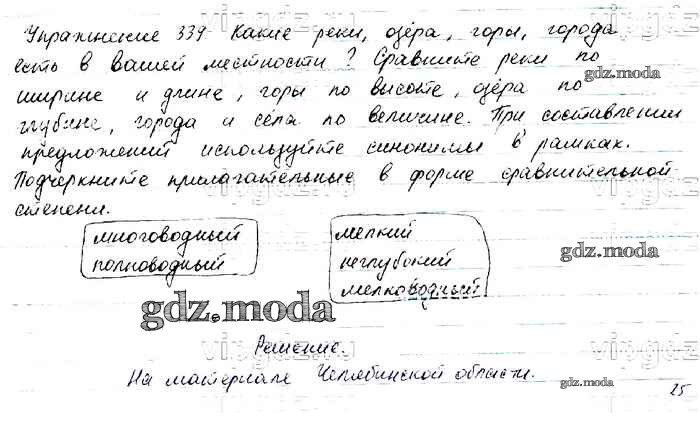 Упражнение 339 Какие реки, озёра, горы, города
есть в вашей местности? Сравните реки по
ширине и длине, горы по высоте, озёра по
глубине, города и сёла по величине. При составлении
предложений используйте синонимы в рамках.
Подчеркните прилагательные в форме сравнительной
степени.
многоводный
полноводный
мелкий
неглубокий
мелководный
Решение.
На материале Челябинской области.
25
gdz.moda
gdz.moda
gdz.moda
gdz.moda